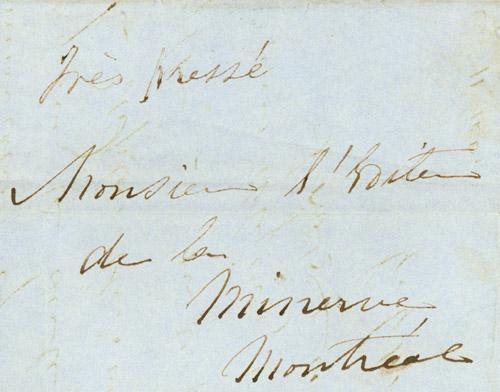 Très Pressé
Monsieur l'Editeur
de la
Minerve
Montréal